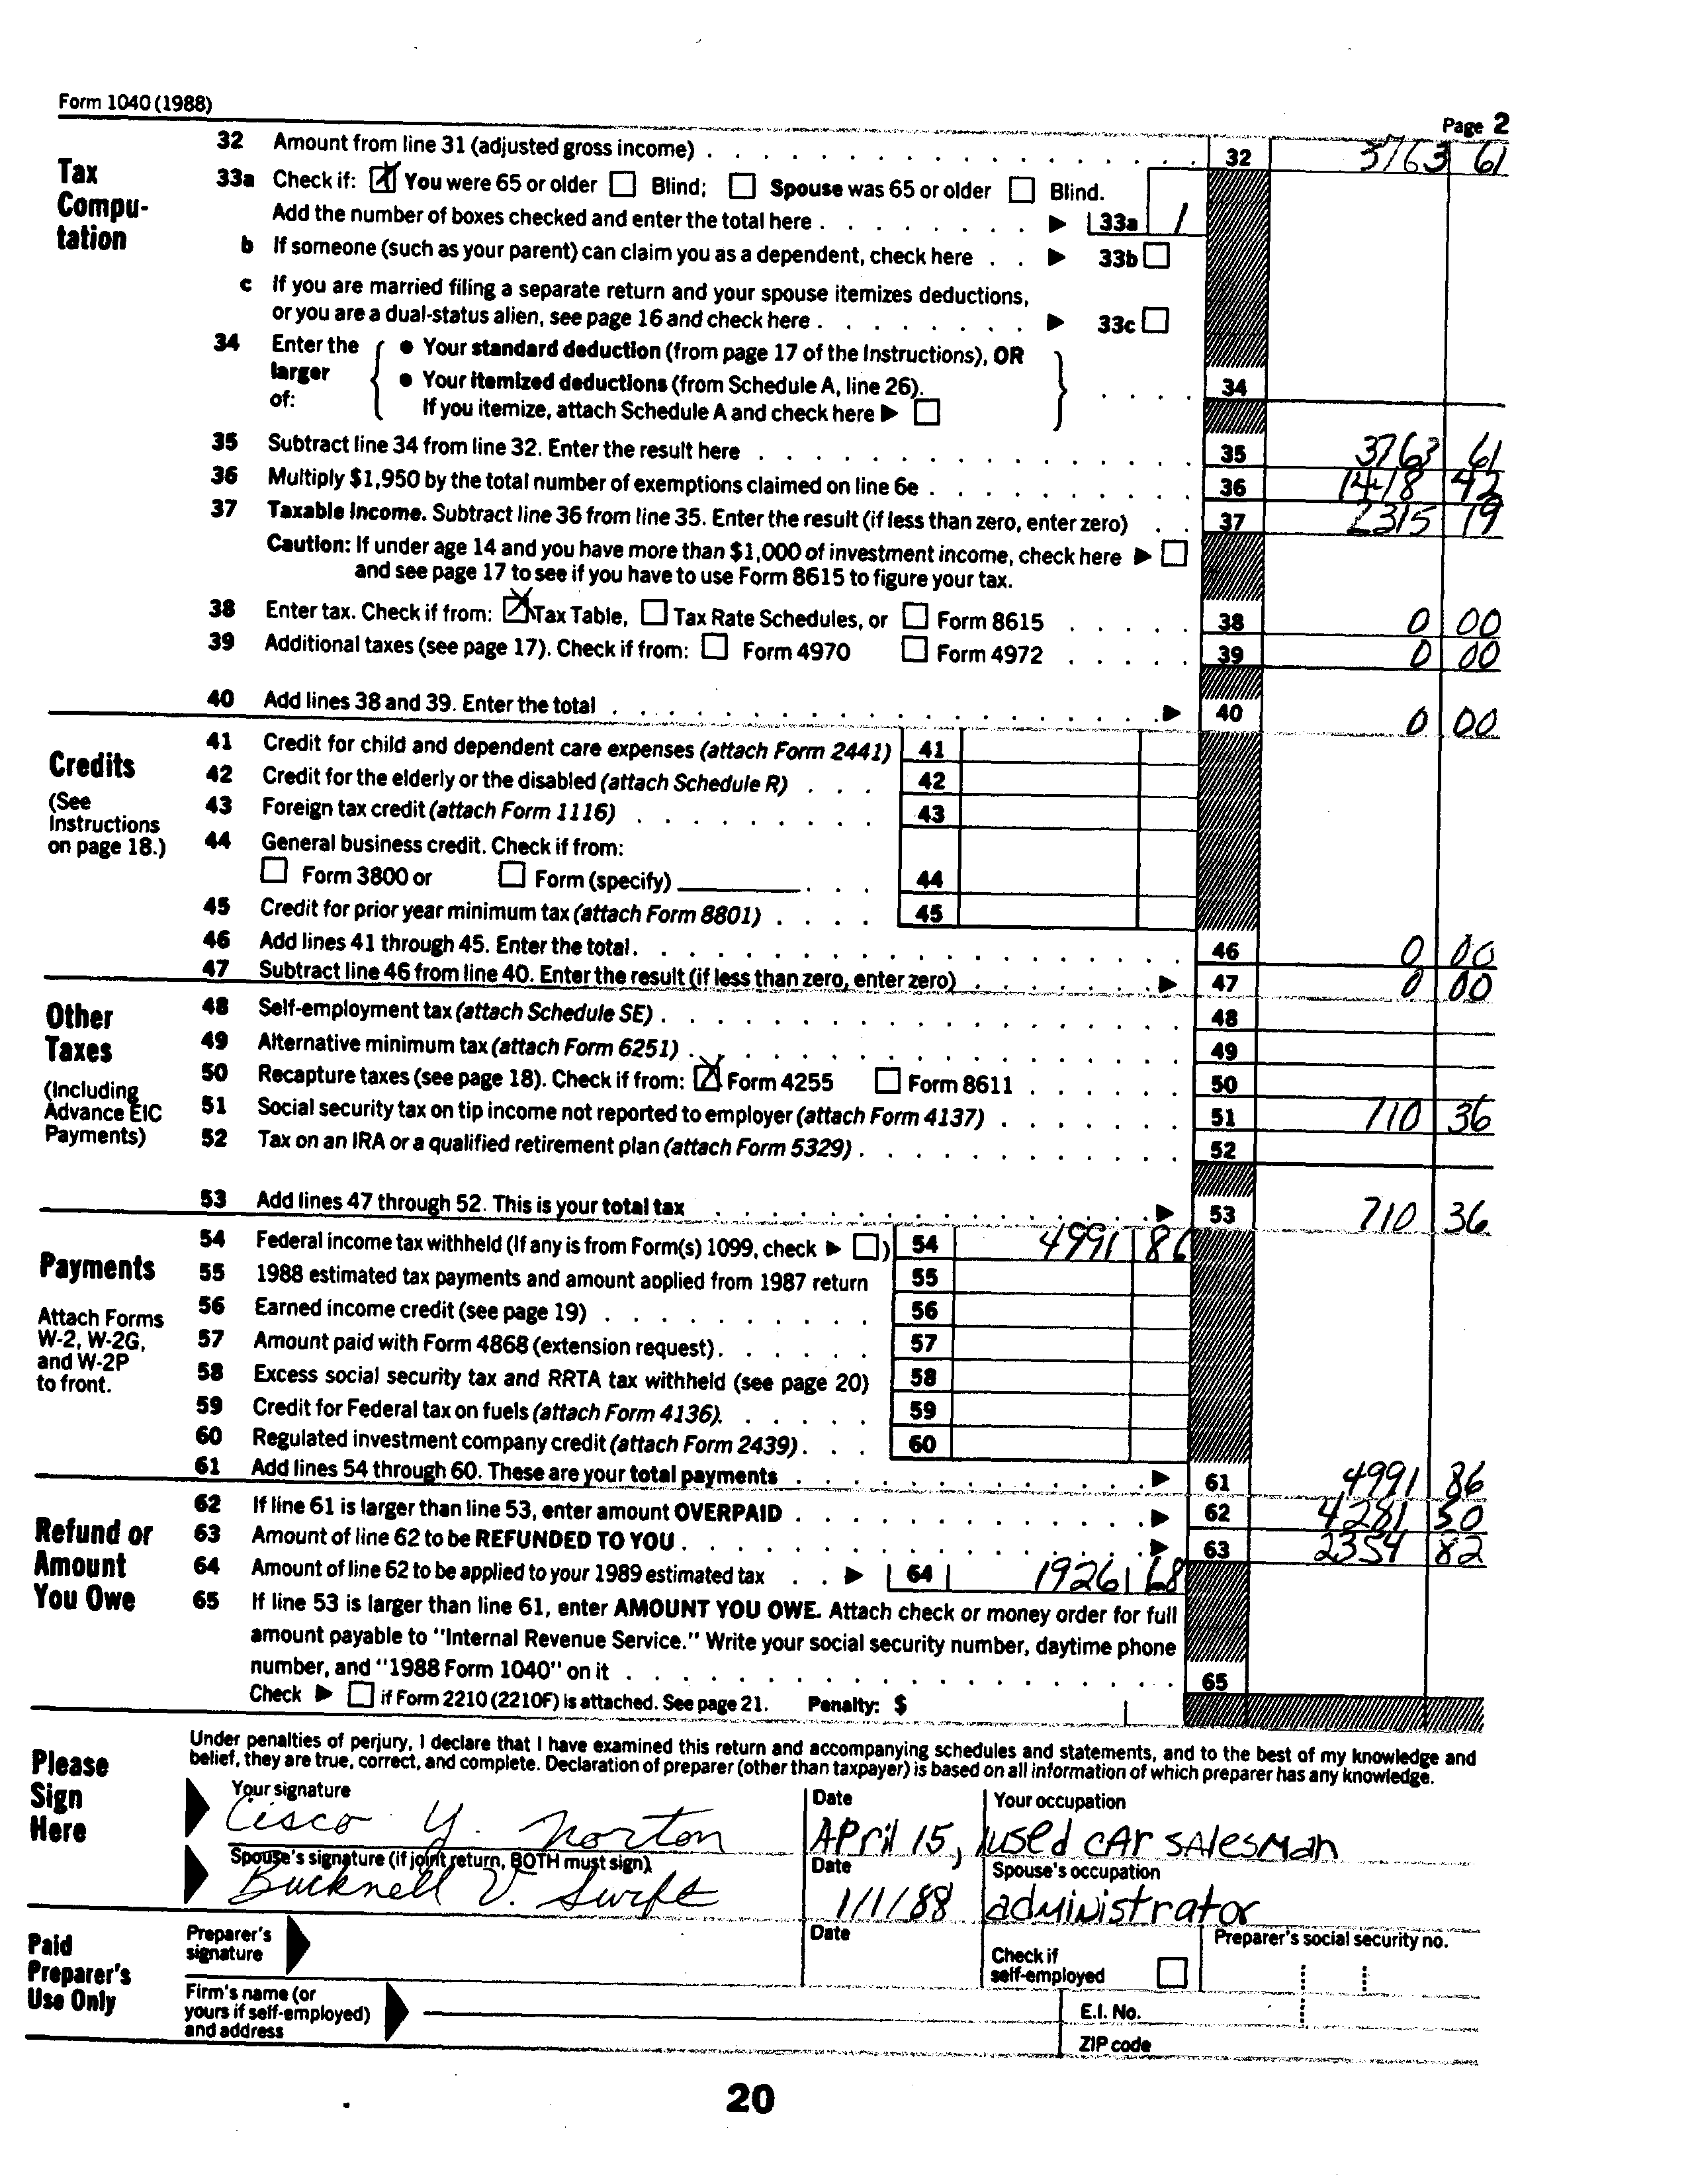 Form 1040 (1988)
Page 2
Tax Compu-tation
32 Amount from line 31 (adjusted gross income) . . . 32 3763 61
33a Check if: [X] You were 65 or older [ ] Blind; [ ] Spouse was 65 or older [ ] Blind.
Add the number of boxes checked and enter the total here . . . ▶ 33a 1
b If someone (such as your parent) can claim you as a dependent, check here . . ▶ 33b [ ]
c If you are married filing a separate return and your spouse itemizes deductions,
or you are a dual-status alien, see page 16 and check here . . . ▶ 33c [ ]
34 Enter the larger of: { • Your standard deduction (from page 17 of the Instructions), OR
• Your itemized deductions (from Schedule A, line 26).
If you itemize, attach Schedule A and check here ▶ [ ] } . . . . 34
35 Subtract line 34 from line 32. Enter the result here . . . 35 3763 61
36 Multiply $1,950 by the total number of exemptions claimed on line 6e . . . 36 1448 42
37 Taxable income. Subtract line 36 from line 35. Enter the result (if less than zero, enter zero) . . 37 2315 19
Caution: If under age 14 and you have more than $1,000 of investment income, check here ▶ [ ]
and see page 17 to see if you have to use Form 8615 to figure your tax.
38 Enter tax. Check if from: [X] Tax Table, [ ] Tax Rate Schedules, or [ ] Form 8615 . . . 38 0 00
39 Additional taxes (see page 17). Check if from: [ ] Form 4970 [ ] Form 4972 . . . 39 0 00
40 Add lines 38 and 39. Enter the total . . . ▶ 40 0 00
Credits
(See Instructions on page 18.)
41 Credit for child and dependent care expenses (attach Form 2441) 41
42 Credit for the elderly or the disabled (attach Schedule R) . . . 42
43 Foreign tax credit (attach Form 1116) . . . 43
44 General business credit. Check if from:
[ ] Form 3800 or [ ] Form (specify) ________ . . . 44
45 Credit for prior year minimum tax (attach Form 8801) . . . . 45
46 Add lines 41 through 45. Enter the total . . . 46 0 00
47 Subtract line 46 from line 40. Enter the result (if less than zero, enter zero) . . . ▶ 47 0 00
Other Taxes
(Including Advance EIC Payments)
48 Self-employment tax (attach Schedule SE) . . . 48
49 Alternative minimum tax (attach Form 6251) . . . 49
50 Recapture taxes (see page 18). Check if from: [X] Form 4255 [ ] Form 8611 . . . 50
51 Social security tax on tip income not reported to employer (attach Form 4137) . . . 51 710 36
52 Tax on an IRA or a qualified retirement plan (attach Form 5329) . . . 52
53 Add lines 47 through 52. This is your total tax . . . ▶ 53 710 36
Payments
Attach Forms W-2, W-2G, and W-2P to front.
54 Federal income tax withheld (If any is from Form(s) 1099, check ▶ [ ]) 54 4991 86
55 1988 estimated tax payments and amount applied from 1987 return 55
56 Earned income credit (see page 19) . . . 56
57 Amount paid with Form 4868 (extension request) . . . 57
58 Excess social security tax and RRTA tax withheld (see page 20) 58
59 Credit for Federal tax on fuels (attach Form 4136) . . . 59
60 Regulated investment company credit (attach Form 2439) . . . 60
61 Add lines 54 through 60. These are your total payments . . . ▶ 61 4991 86
Refund or Amount You Owe
62 If line 61 is larger than line 53, enter amount OVERPAID . . . ▶ 62 4281 50
63 Amount of line 62 to be REFUNDED TO YOU . . . ▶ 63 2354 82
64 Amount of line 62 to be applied to your 1989 estimated tax . . ▶ 64 1926 68
65 If line 53 is larger than line 61, enter AMOUNT YOU OWE. Attach check or money order for full
amount payable to "Internal Revenue Service." Write your social security number, daytime phone
number, and "1988 Form 1040" on it . . . 65
Check ▶ [ ] if Form 2210 (2210F) is attached. See page 21. Penalty: $
Please Sign Here
Under penalties of perjury, I declare that I have examined this return and accompanying schedules and statements, and to the best of my knowledge and
belief, they are true, correct, and complete. Declaration of preparer (other than taxpayer) is based on all information of which preparer has any knowledge.
Your signature Date Your occupation
Cisco Y. Norton April 15, used car salesman
Spouse's signature (if joint return, BOTH must sign) Date Spouse's occupation
Bucknell V. Swift 1/1/88 administrator
Paid Preparer's Use Only
Preparer's signature Date Check if self-employed [ ] Preparer's social security no.
Firm's name (or yours if self-employed) and address
E.I. No.
ZIP code
20